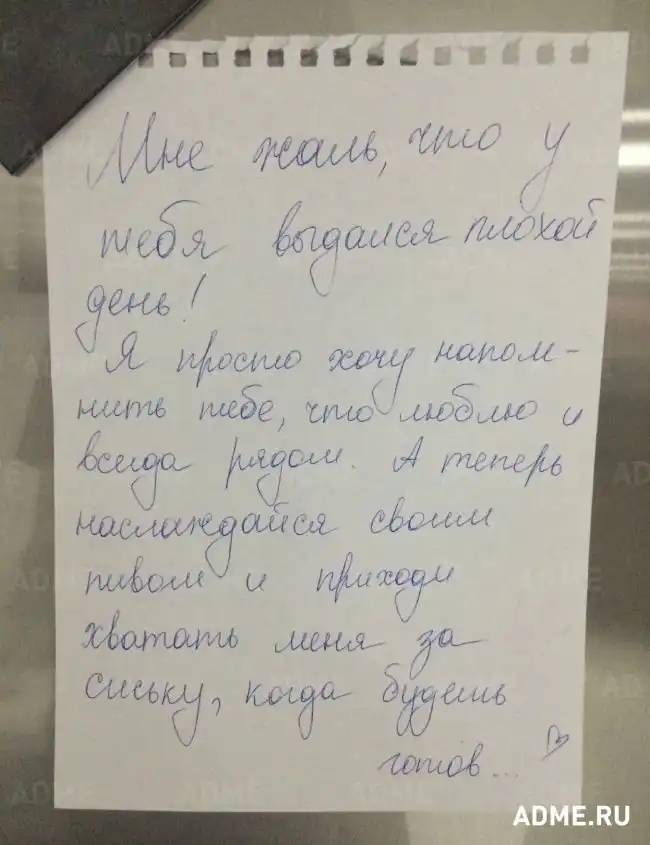 Мне жаль, что у
тебя выдался плохой
день!
Я просто хочу напом-
нить тебе, что люблю и
всегда рядом. А теперь
наслаждайся своим
пивом и приходи
хватать меня за
сиську, когда будешь
готов...
ADME.RU